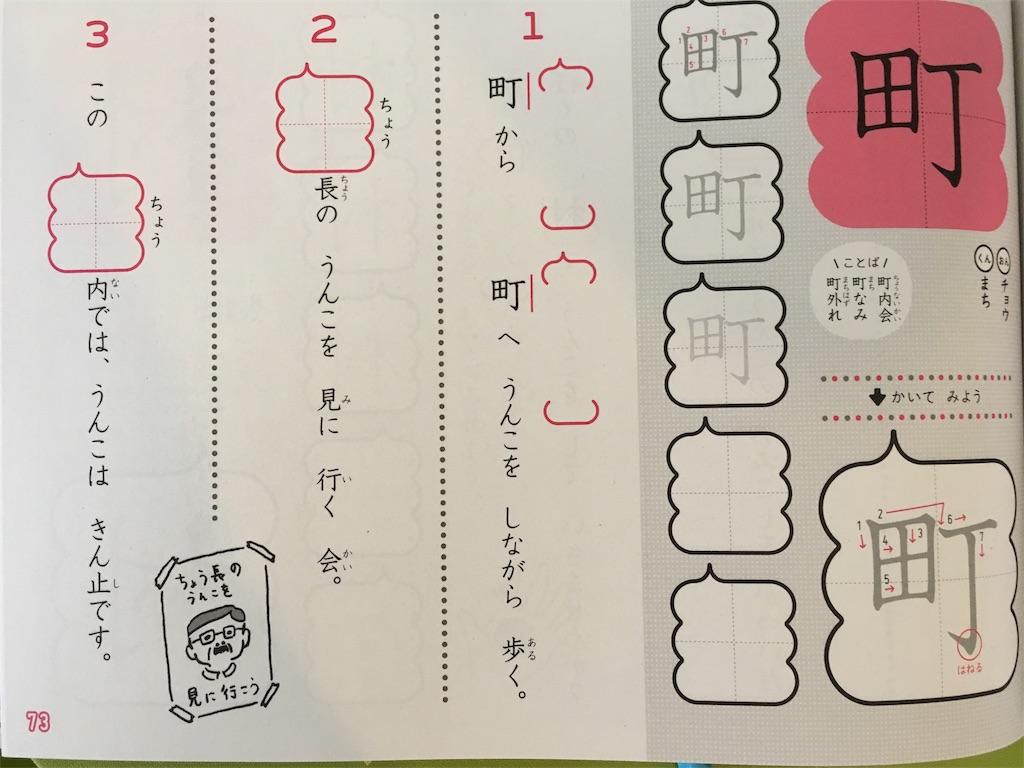 町
おん チョウ
くん まち
\ことば/
町内会
ちょうないかい
町なみ
まち
町外れ
まちはず
かいて みよう
町
1
2
3
4
5
6
7
はねる
町
1
2
3
4
5
6
7
町
町
1
町から 町へ うんこを しながら 歩く。
ある
2
ちょう
長の うんこを 見に 行く 会。
ちょう み い かい
3
この 内では、うんこは きん止です。
ちょう ない し
ちょう長の
うんこを
見に行こう
73